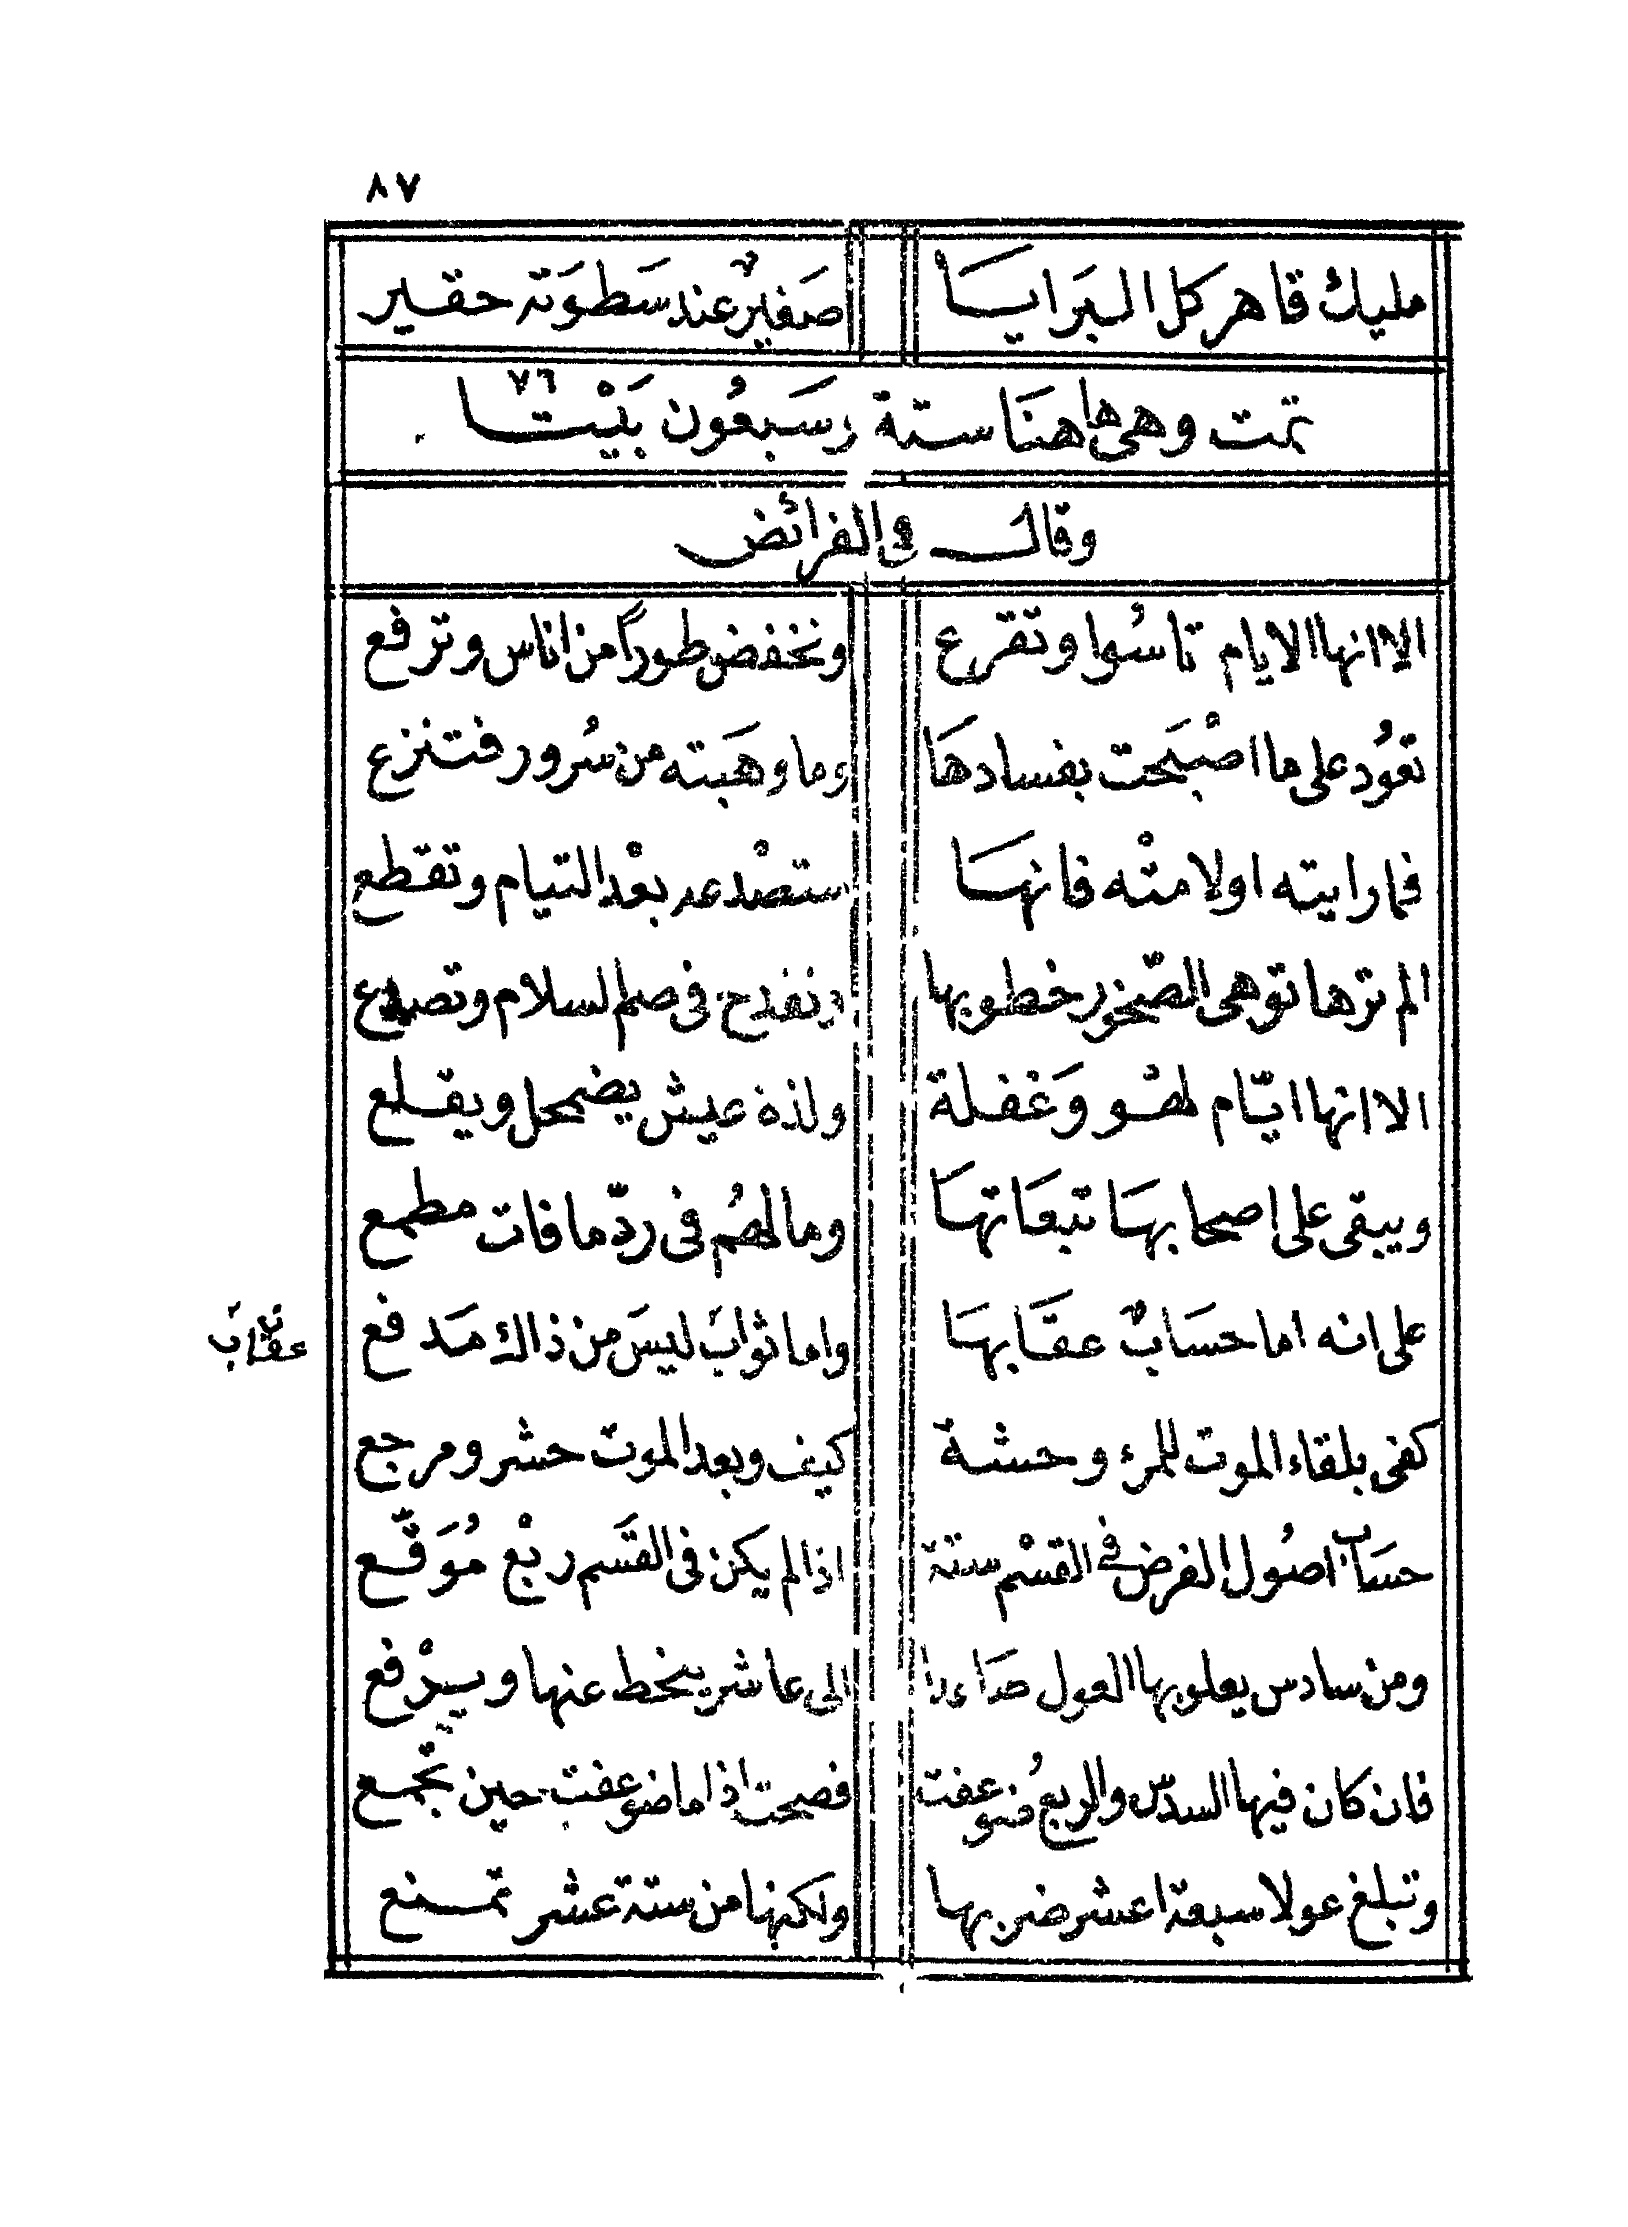 ٨٧
مليك قاهر كل البرايا صغير عند سطوته حقير
تمت وهي هاهنا ستة وسبعون بيتا ٧٦
وقال في الفرائض
الا انها الايام تاسُوا وتقرع ونخفض طوراً من اناس وترفع
تعُود على ما اصْبَحت بفسادهَا وما وهَبته من سُرور فتنزع
فما رايته اولا مثْه فانهَا ستصْدعه بعْد التيام وتقطع
الم ترها توهى الصّخور خطوبها وتفدح في صم السلام وتصدع
الا انها ايّام لهْو وَغفلة ولذة عيش يضمحل ويقلع
ويبقى على اصحابهَا تبعَاتهَا وما لهُم فى ردّ ما فات مطمع
على انه اما حسَابٌ عقَابهَا واما ثوابَ ليسَ من ذاك مَدفع
عقابَ
كفى بلقاء الموت للمرء وحشة كيف وبعد الموت حشر ومرجع
حسَاب اصُول الفرض في القسْم ستة اذا لم يكن فى القسَم ربْع مُوَقّع
ومن سادس يعلو بها العول الى عاشر ينحط عنها ويرْفع
فان كان فيها السدس والربعُ ضوعفت فصحت اذا ما ضوعفت حين تجّمع
وتبلغ عولا سبعة اعشر ضربها ولكنها من ستة عشر تمنع